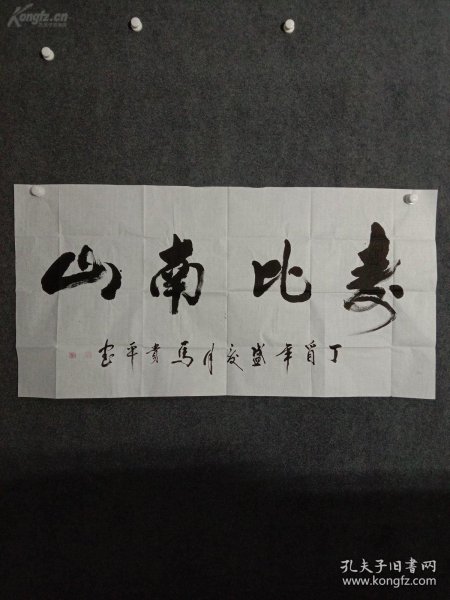 Kongfz.cn
寿比南山
丁酉年盛夏月马贵平书
孔夫子旧书网
www.kongfz.com